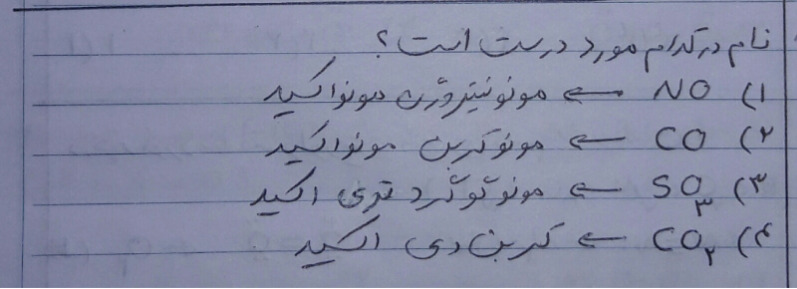 نام در کدام مورد درست است؟
۱) NO ← مونونیتروژن مونواکسید
۲) CO ← مونوکربن مونواکسید
۳) SO۳ ← مونوگوگرد تری اکسید
۴) CO۲ ← کربن دی اکسید